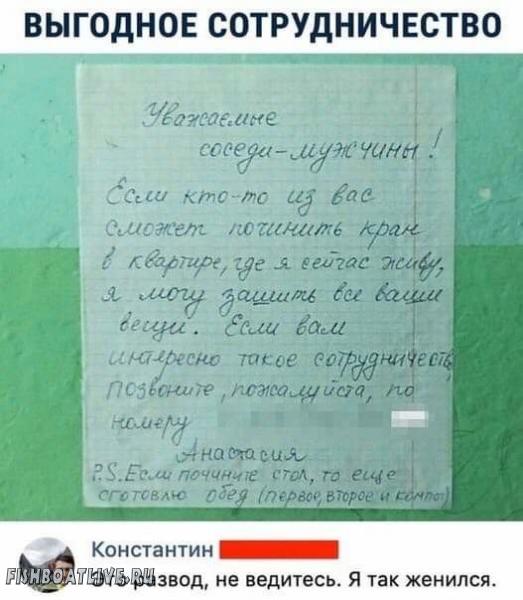 ВЫГОДНОЕ СОТРУДНИЧЕСТВО
Уважаемые
соседи-мужчины!
Если кто-то из вас
сможет починить кран
в квартире, где я сейчас живу,
я могу зашить все ваши
вещи. Если вам
интересно такое сотрудничеств
позвоните, пожалуйста, по
номеру
Анастасия
P.S. Если почините стол, то еще
сготовлю обед (первое, второе и компот)
Константин
FISHBOATLIVE.RU
развод, не ведитесь. Я так женился.